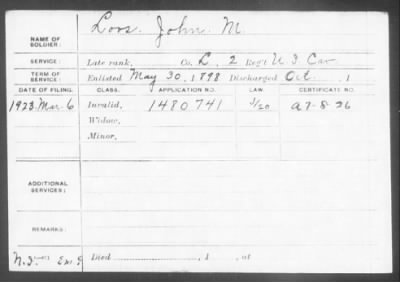 NAME OF SOLDIER: Loos, John M.
SERVICE: Late rank, Co. L, 2 Reg't U S Cav
TERM OF SERVICE: Enlisted May 30, 1898 Discharged Oct , 1
DATE OF FILING. CLASS. APPLICATION NO. LAW. CERTIFICATE NO.
1923 Mar 6 Invalid, 1480741 3/20 a 7-8-26
Widow,
Minor,
ADDITIONAL SERVICES:
REMARKS:
Died , 1 , at